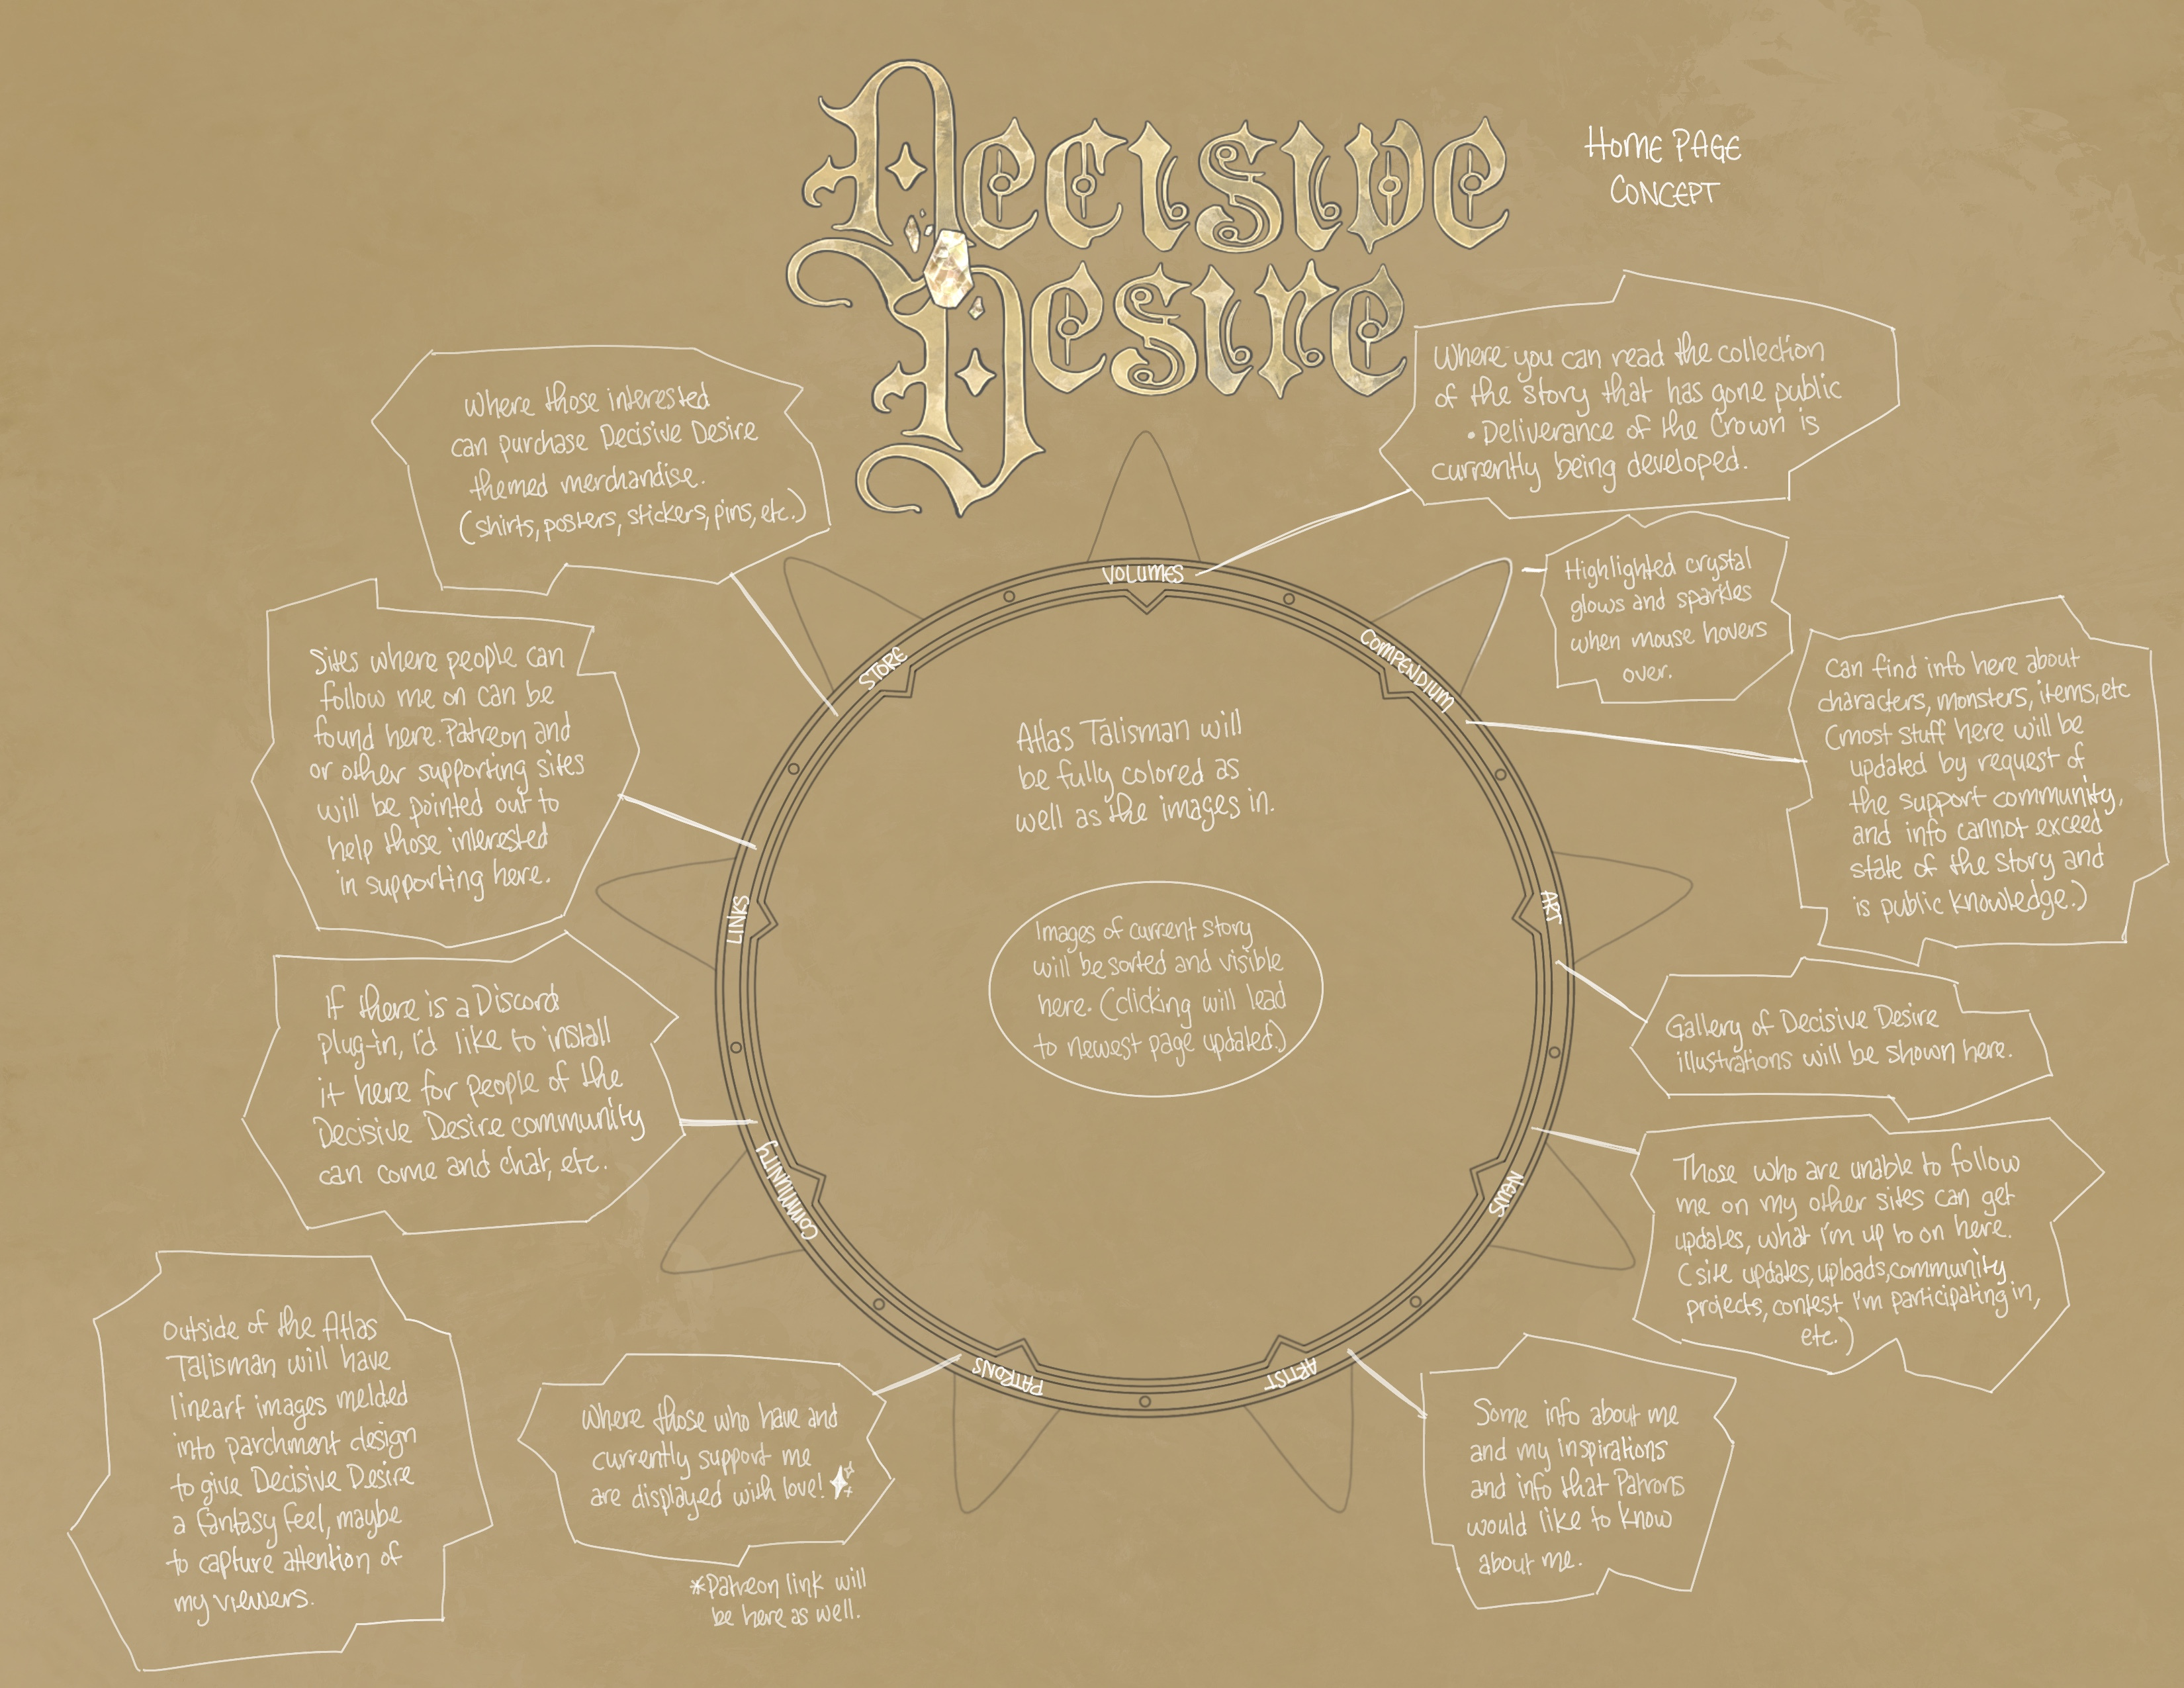 Decisive
Desire
Home Page
Concept
Where you can read the collection
of the story that has gone public
• Deliverance of the Crown is
currently being developed.
Where those interested
can purchase Decisive Desire
themed merchandise.
(shirts, posters, stickers, pins, etc.)
Highlighted crystal
glows and sparkles
when mouse hovers
over.
VOLUMES
STORE
COMPENDIUM
Sites where people can
follow me on can be
found here. Patreon and
or other supporting sites
will be pointed out to
help those interested
in supporting here.
Can find info here about
characters, monsters, items, etc
(most stuff here will be
updated by request of
the support community,
and info cannot exceed
state of the story and
is public knowledge.)
Atlas Talisman will
be fully colored as
well as the images in.
LINKS
ART
Images of current story
will be sorted and visible
here. (clicking will lead
to newest page updated.)
If there is a Discord
plug-in, I'd like to install
it here for people of the
Decisive Desire community
can come and chat, etc.
Gallery of Decisive Desire
illustrations will be shown here.
COMMUNITY
NEWS
Those who are unable to follow
me on my other sites can get
updates, what I'm up to on here.
(site updates, uploads, community
projects, contest I'm participating in,
etc.)
Outside of the Atlas
Talisman will have
lineart images melded
into parchment design
to give Decisive Desire
a fantasy feel, maybe
to capture attention of
my viewers.
PATRONS
ARTIST
Where those who have and
currently support me
are displayed with love!
*Patreon link will
be here as well.
Some info about me
and my inspirations
and info that Patrons
would like to know
about me.